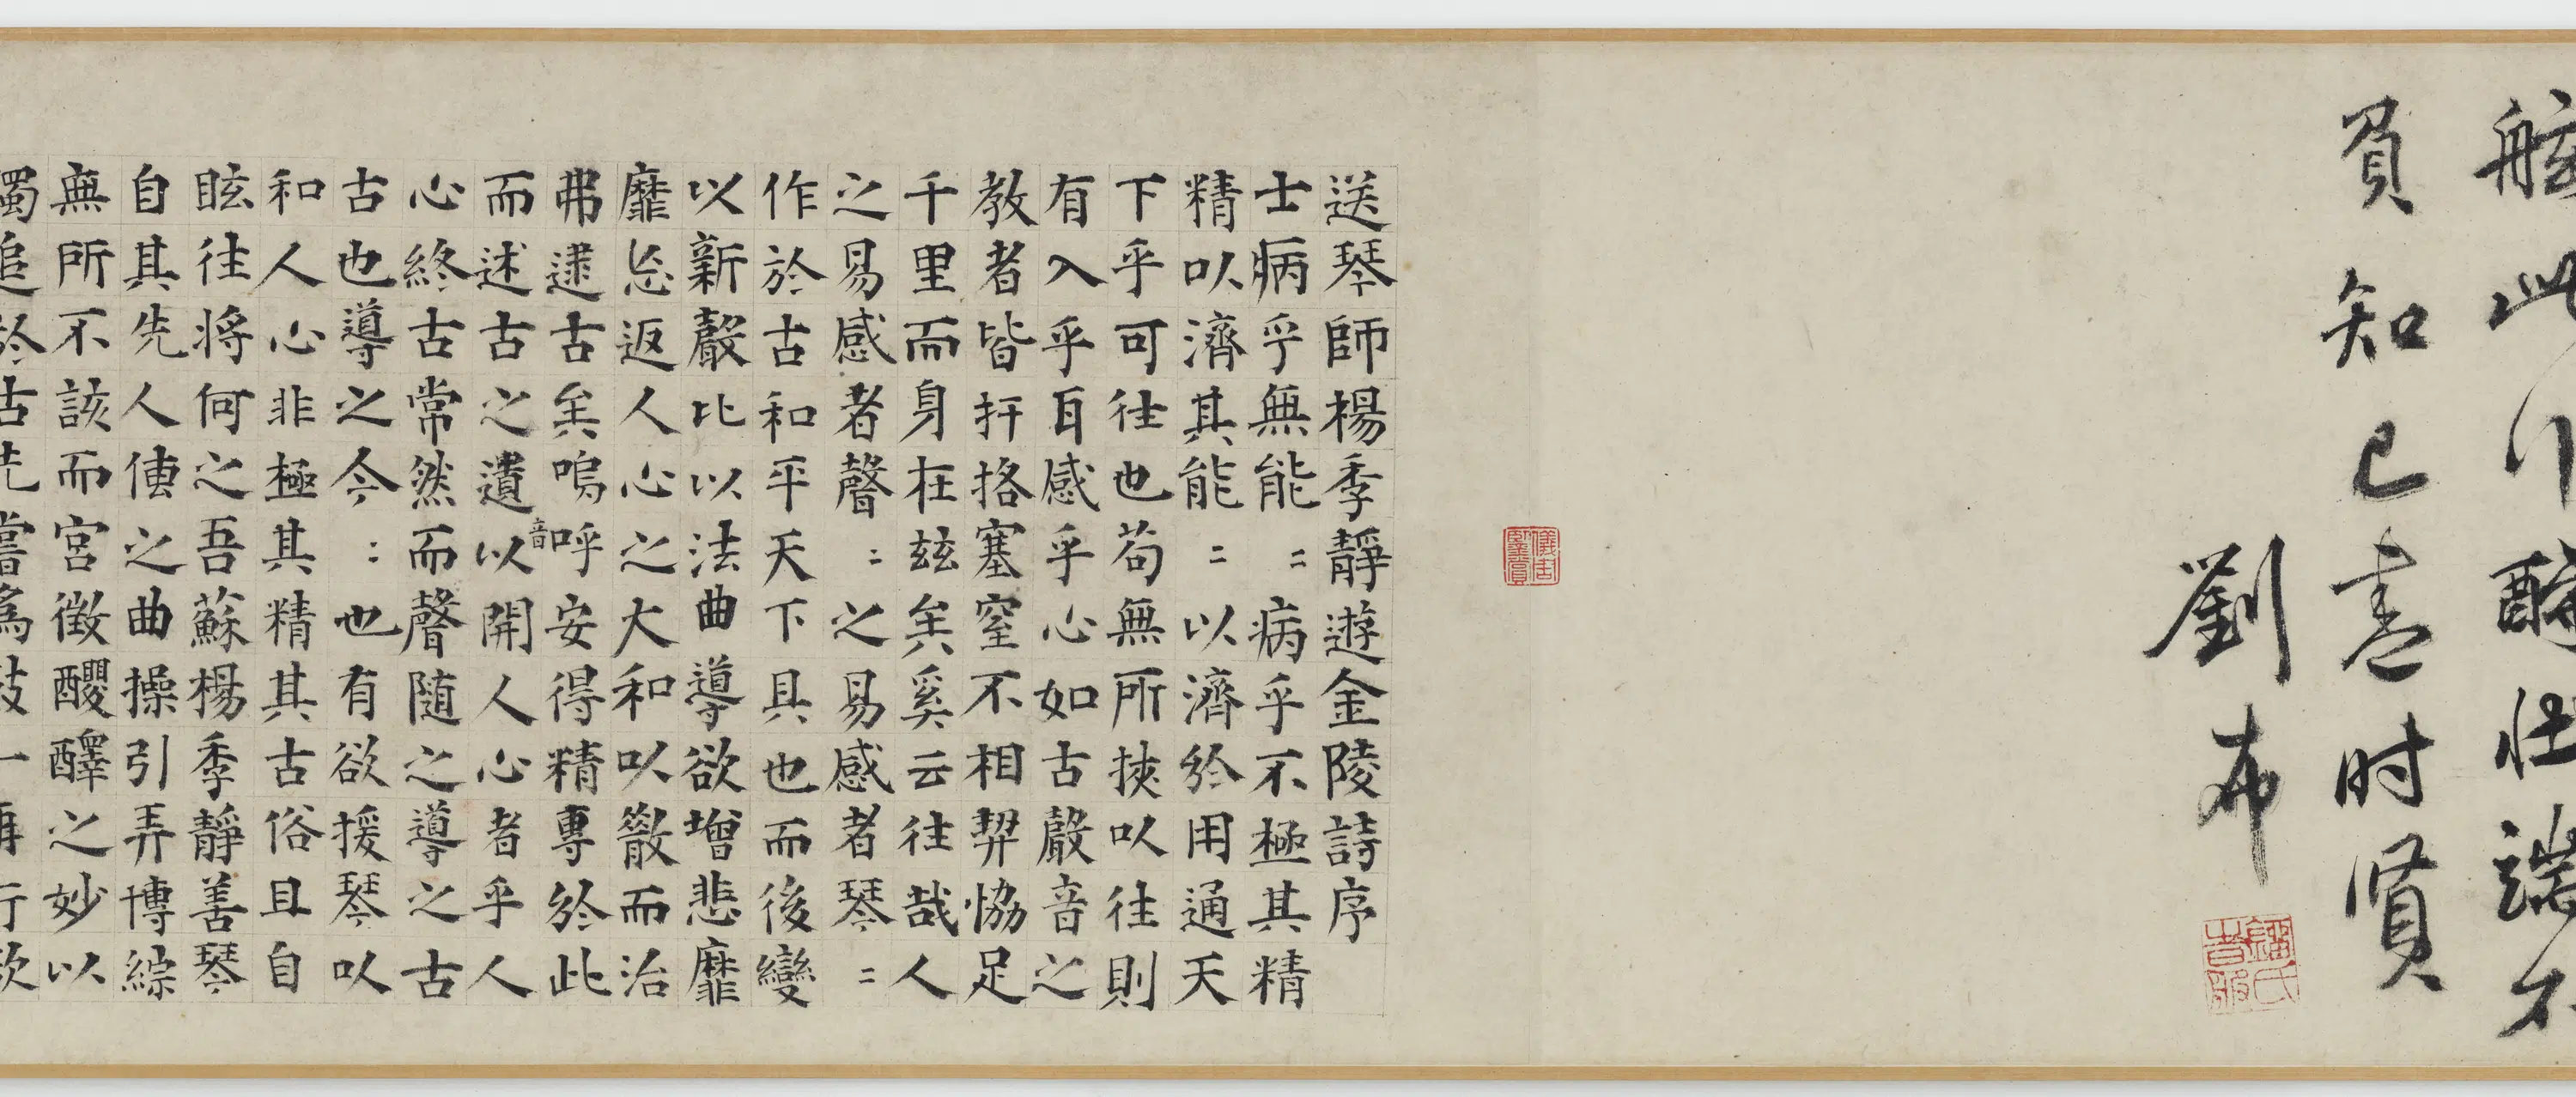 此行酬壮端不
負知己
時賢
劉布
儀周鑒賞
送琴師楊季靜遊金陵詩序
士病乎無能〻病乎不極其精
精以濟其能〻以濟於用通天
下乎可往也苟無所挾以往則
有入乎耳感乎心如古聲音之
教者皆扞挌塞窒不相契協足
千里而身在玆矣奚云往哉人
之易感者聲〻之易感者琴〻
作於古和平天下具也而後變
以新聲比以法曲導欲增悲靡
靡忘返人心之大和以散而治
弗逮古矣嗚呼安得精專於此
而述古之遺音以開人心者乎人
心終古常然而聲隨之導之古
古也導之今〻也有欲援琴以
和人心非極其精其古俗且自
眩往將何之吾蘇楊季靜善琴
自其先人傳之曲操引弄博綜
無所不該而宮徵醲醳之妙以
獨追於古先嘗為鼓一再行